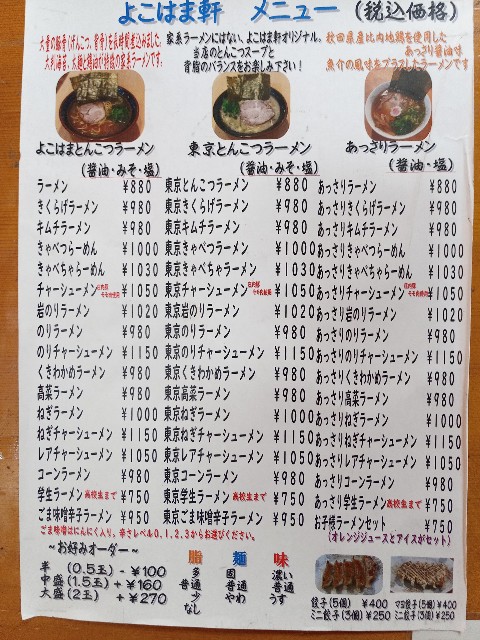 よこはま軒 メニュー (税込価格)
大量の豚骨(げんこつ、背骨)を長時間煮込みました。
大判海苔、太麺と鶏油が特徴の家系ラーメンです。
家系ラーメンにはない、よこはま軒オリジナル。
当店のとんこつスープと
背脂のバランスをお楽しみ下さい!
秋田県産比内地鶏を使用した
あっさり醤油味
魚介の風味をプラスしたラーメンです
よこはまとんこつラーメン
(醤油・みそ・塩)
ラーメン ¥880
きくらげラーメン ¥980
キムチラーメン ¥980
きゃべつらーめん ¥1000
きゃべちゃらーめん ¥1030
チャーシューメン ¥1050
岩のりラーメン ¥1020
のりラーメン ¥980
のりチャーシューメン ¥1150
くきわかめラーメン ¥980
高菜ラーメン ¥980
ねぎラーメン ¥1000
ねぎチャーシューメン ¥1150
レアチャーシューメン ¥1050
コーンラーメン ¥980
学生ラーメン 高校生まで ¥750
ごま味噌辛子ラーメン ¥950
ごま味噌はにんにく入り。辛さレベル0.1.2.3からお選びください。
東京とんこつラーメン
(醤油・みそ・塩)
東京とんこつラーメン ¥880
東京きくらげラーメン ¥980
東京キムチラーメン ¥980
東京きゃべつラーメン ¥1000
東京きゃべちゃラーメン ¥1030
東京チャーシューメン ¥1050
東京岩のりラーメン ¥1020
東京のりラーメン ¥980
東京のりチャーシューメン ¥1150
東京くきわかめラーメン ¥980
東京高菜ラーメン ¥980
東京ねぎラーメン ¥1000
東京ねぎチャーシューメン ¥1150
東京レアチャーシューメン ¥1050
東京コーンラーメン ¥980
東京学生ラーメン 高校生まで ¥750
東京ごま味噌辛子ラーメン ¥950
あっさりラーメン
(醤油・塩)
あっさりラーメン ¥880
あっさりきくらげラーメン ¥980
あっさりキムラーメン ¥980
あっさりきゃべつらーめん ¥1000
あっさりきゃべちゃらーめん ¥1030
あっさりチャーシューメン ¥1050
あっさり岩のりラーメン ¥1020
あっさりのりラーメン ¥980
あっさりのりチャーシューメン ¥1150
あっさりくきわかめラーメン ¥980
あっさり高菜ラーメン ¥980
あっさりねぎラーメン ¥1000
あっさりねぎチャーシューメン ¥1150
あっさりレアチャーシューメン ¥1050
あっさりコーンラーメン ¥980
あっさり学生ラーメン 高校生まで ¥750
お子様ラーメンセット ¥750
(オレンジジュースとアイスがセット)
~お好みオーダー~
半 (0.5玉) -¥100
中盛 (1.5玉) +¥160
大盛 (2玉) +¥270
脂 麺 味
多 固 濃い
普通 普通 普通
少 やわ うす
なし
餃子(5個) ¥400
ミニ餃子(3個) ¥250
マヨ餃子(5個) ¥400
ミニ餃子(3個) ¥250